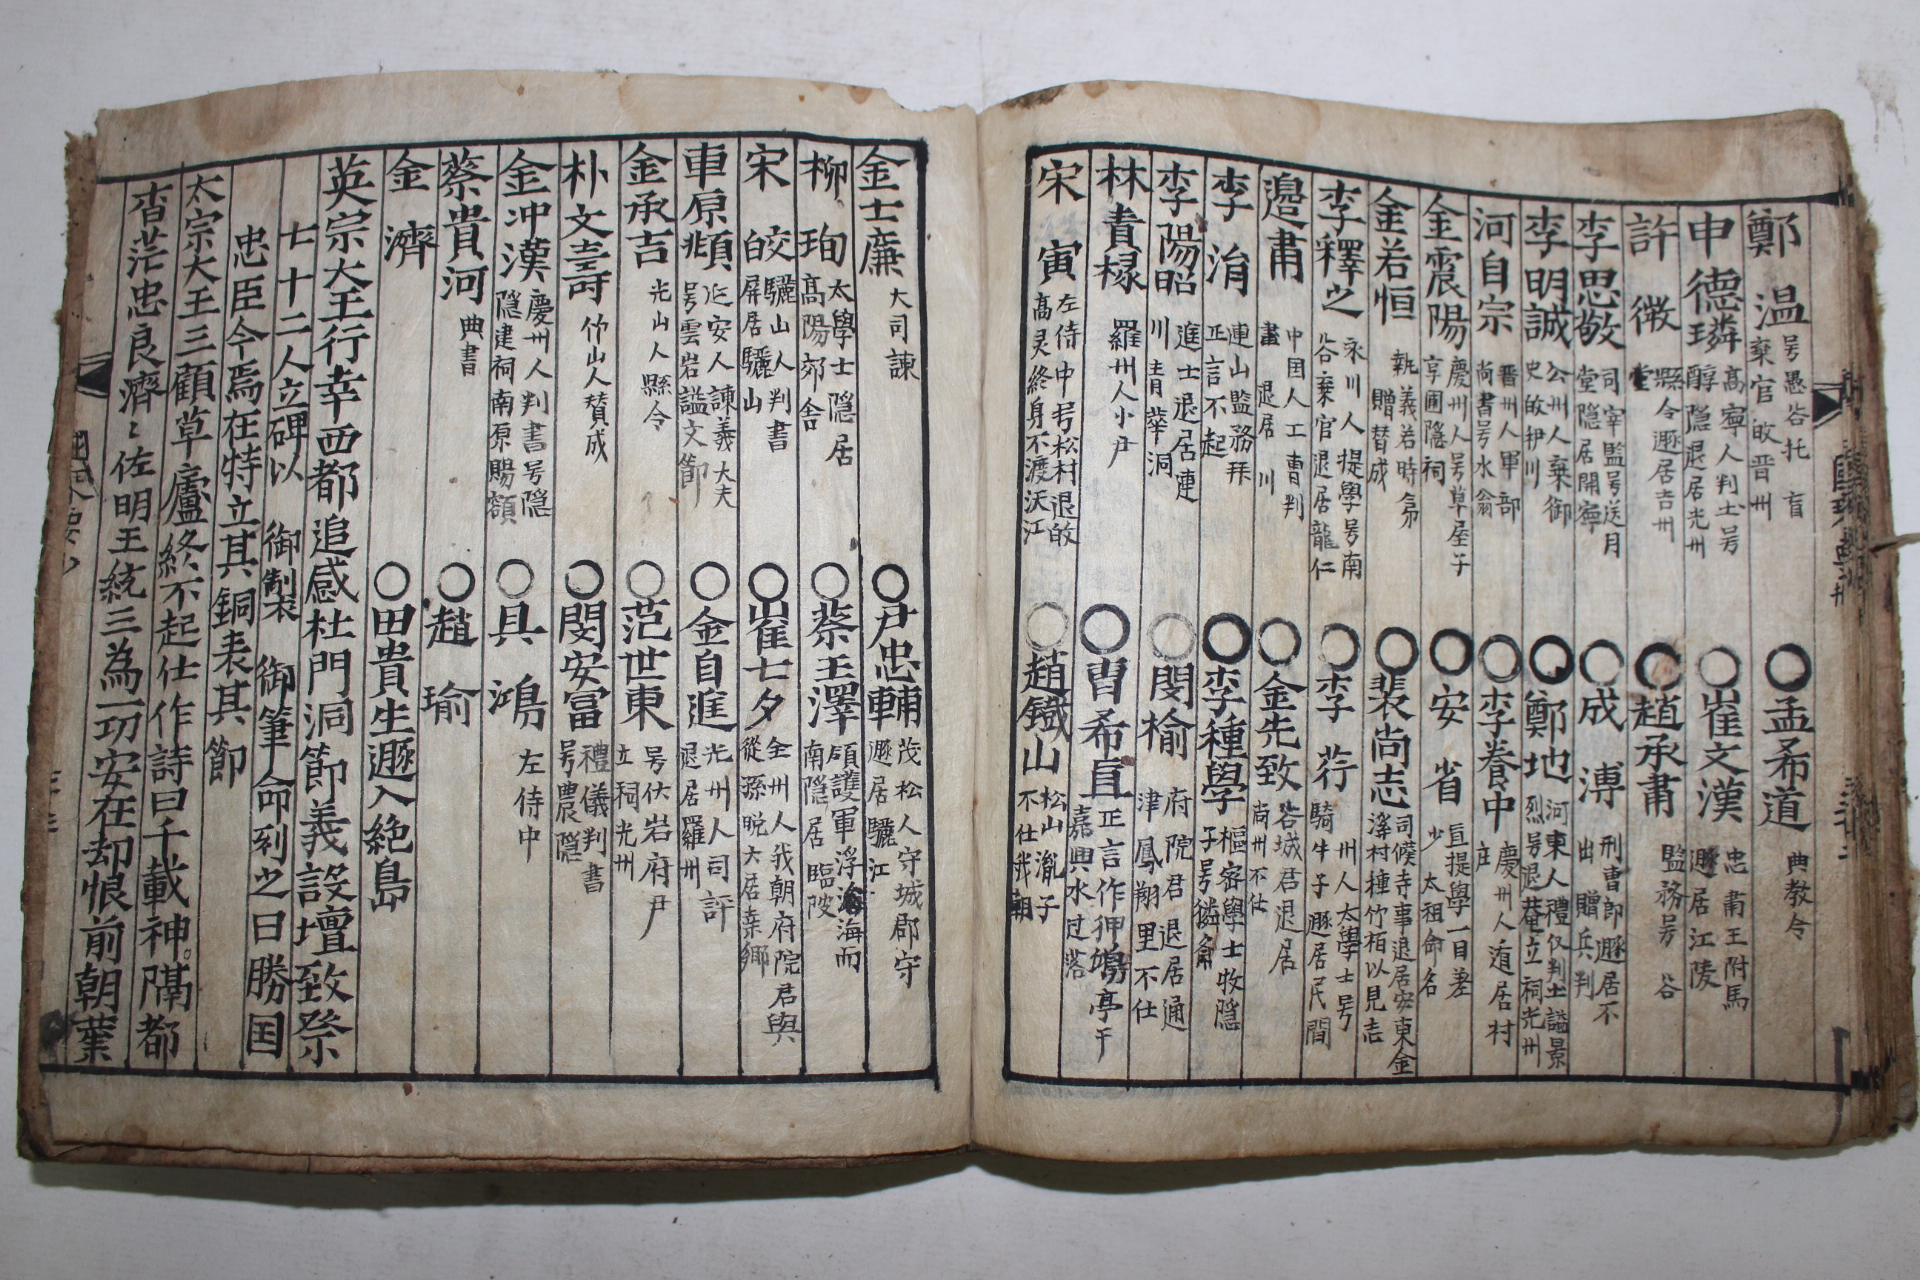 鄭 温 号愚谷托盲棄官故晋州 ○孟希道 典教令
申德璘 高寧人判士号醇隠退居光州 ○崔文漢 忠肅王附馬遯居江陵
許 徴 縣令遯居吉州 ○趙承肅 監務号 谷
李思敬 司宰監号送月堂隠居開寧 ○成 溥 刑曹郎遯居不出贈兵判
李明誠 公州人棄御史故伊川 ○鄭地 河東人禮仪判士謚景烈号退菴立祠光州
河自宗 晋州人軍部尚書号水翁 ○李養中 慶州人遁居村庄
金震陽 慶州人号草屋子享圃隠祠 ○安 省 直提學一目差少太祖命名
金若恒 執義若時弟贈賛成 ○裴尚志 司僕寺事退居安東金溪村種竹栢以見志
李釋之 永川人提學号南谷棄官退居龍仁 ○李 荇 州人太學士号騎牛子遯居民間
邉肅 中国人工曹判畫 退居 川 ○金先致 谷城君退居尚州不仕
李 㴘 連山監務拜正言不起 ○李種學 樞密學士牧隠子号麟角
李陽昭 進士退居連川青華洞 ○閔楡 府院君退居通津鳳翔里不仕
林責椽 羅州人小尹 ○曺希直 正言作狎鷗亭于嘉興水过落
宋 寅 左侍中号松村退故高灵終身不渡沃江 ○趙鐡山 松山胤子不仕我朝
金士廉 大司諫 ○尹忠輔 茂松人守城郡守遯居驪江
柳 珣 太學士隠居高陽郊舎 ○蔡王澤 碩護軍浮海而南隠居臨陂
宋 皎 驪山人判書屏居驪山 ○崔七夕 全州人我朝府院君與從孫脱大居桒鄉
車原頫 延安人諫義大夫号雲岩謚文節 ○金自進 光州人司評退居羅州
金承吉 光山人縣令 ○范世東 号伏岩府尹立祠光州
朴文壽 竹山人賛成 ○閔安富 禮儀判書号農隠
金冲漢 慶州人判書号隠隠建祠南原賜額 ○具 鴻 左侍中
蔡貴河 典書 ○趙 瑜
金 濟 ○田貴生遯入絶島
英宗大王行幸西都追感杜門洞節義設壇致祭
七十二人立碑以 御製 御筆命刻之曰勝国
忠臣今焉在特立其銅表其節
太宗大王三顧草廬終不起仕作詩曰千載神隔都
杳茫忠良濟〻佐明王統三為一功安在却恨前朝葉